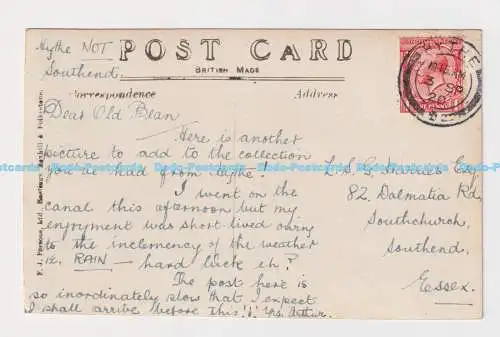 Hythe NOT
Southend.
POST CARD
BRITISH MADE
Correspondence
Address
Dear Old Bean
Here is another
picture to add to the collection
you've had from Hythe!
I went on the
canal this afternoon but my
enjoyment was short lived owing
to the inclemency of the weather
i.e. RAIN — hard luck eh?
The post here is
so inordinately slow that I expect
I shall arrive before this!! Yrs. Arthur.
L. S. G. Davies Esq
82. Dalmatia Rd,
Southchurch,
Southend.
Essex.
F. J. Parsons, Ltd., Hastings, Bexhill & Folkestone.
HYTHE